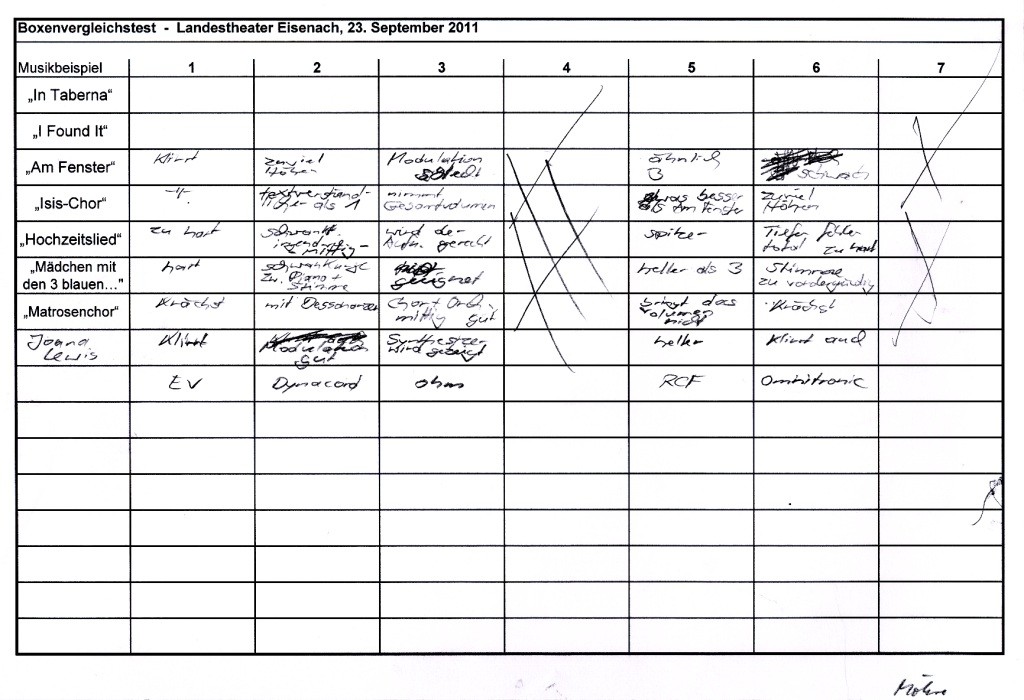 Boxenvergleichstest - Landestheater Eisenach, 23. September 2011
Musikbeispiel 1 2 3 4 5 6 7
„In Taberna“
„I Found It“
„Am Fenster“ Klirrt zuviel Höhen Modulation schlecht ähnlich 3 schwach
„Isis-Chor“ -"- textverständlicher als 1 nimmt Gesamtvolumen etwas besser als Am Fenster zuviel Höhen
„Hochzeitslied“ zu hart schwankt. mittig wird der Aufn. gerecht spitzer Tiefen fehlen total zu hart
„Mädchen mit
den 3 blauen...“ hart schwankungen zw. Piano + Stimme geeignet heller als 3 Stimme zu vordergündig
„Matrosenchor“ Krächst mit Dessonanzen Chor + Orch. mittig gut bringt das Volumen nicht Krächst
Joana Lewis Klirrt Modulation gut Synthesizer wird heller Klirrt und
EV Dynacord ohm RCF Omnitronic